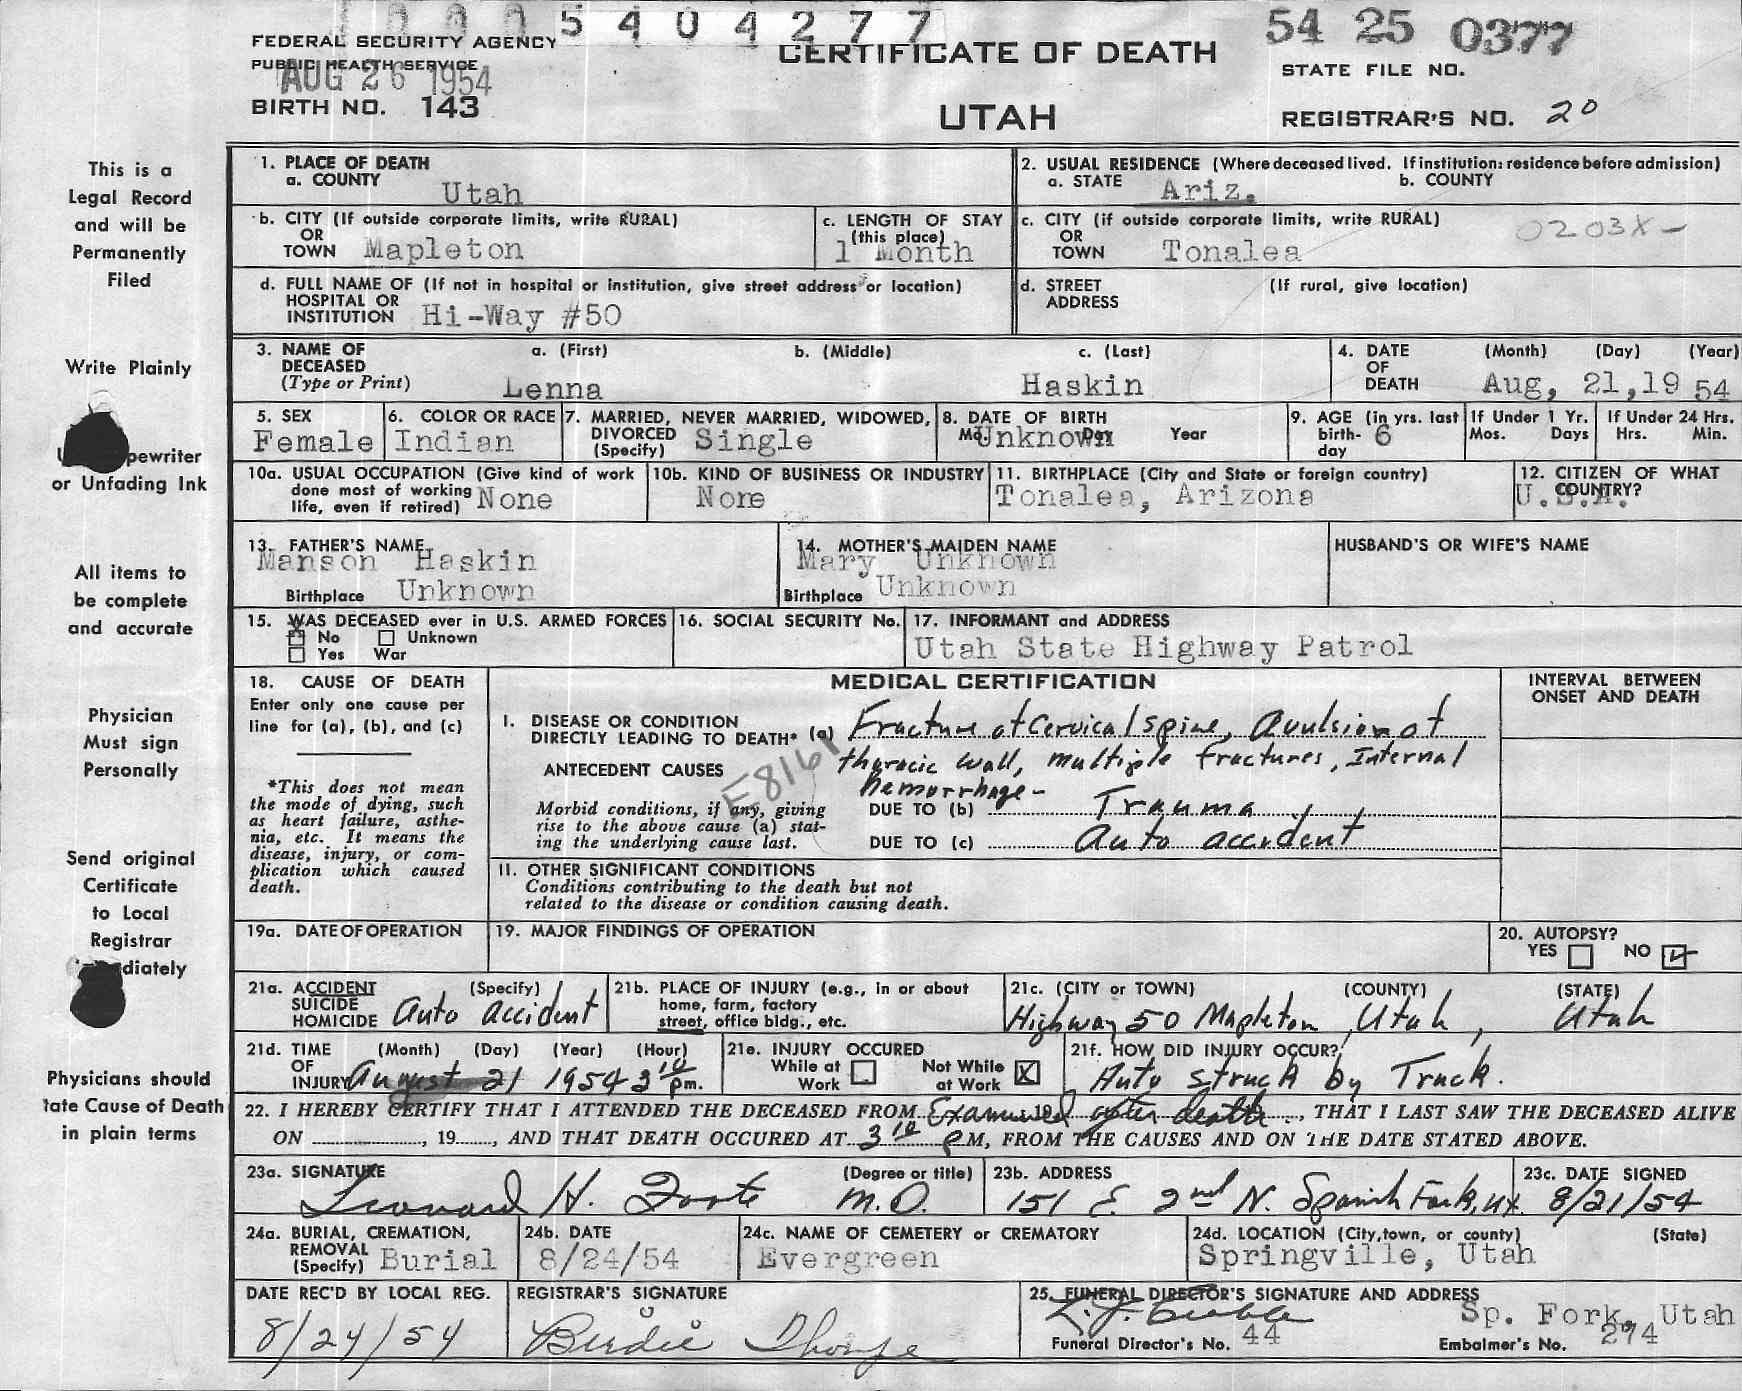 5 4 0 4 2 7 7
54 25 0377
FEDERAL SECURITY AGENCY
CERTIFICATE OF DEATH
PUBLIC HEALTH SERVICE
AUG 26 1954
STATE FILE NO.
BIRTH NO. 143
UTAH
REGISTRAR'S NO. 20
This is a
Legal Record
and will be
Permanently
Filed
Write Plainly
pewriter
or Unfading Ink
All items to
be complete
and accurate
Physician
Must sign
Personally
Send original
Certificate
to Local
Registrar
diately
Physicians should
tate Cause of Death
in plain terms
1. PLACE OF DEATH
a. COUNTY Utah
2. USUAL RESIDENCE (Where deceased lived. If institution: residence before admission)
a. STATE Ariz. b. COUNTY
b. CITY (If outside corporate limits, write RURAL)
OR
TOWN Mapleton
c. LENGTH OF STAY
(this place)
1 Month
c. CITY (if outside corporate limits, write RURAL)
OR
TOWN Tonalea
0203X-
d. FULL NAME OF (If not in hospital or institution, give street address or location)
HOSPITAL OR
INSTITUTION Hi-Way #50
d. STREET (If rural, give location)
ADDRESS
3. NAME OF a. (First) b. (Middle) c. (Last)
DECEASED
(Type or Print) Lenna Haskin
4. DATE (Month) (Day) (Year)
OF
DEATH Aug, 21,19 54
5. SEX
Female
6. COLOR OR RACE
Indian
7. MARRIED, NEVER MARRIED, WIDOWED,
DIVORCED
(Specify) Single
8. DATE OF BIRTH
Mo. Day Year
Unknown
9. AGE (in yrs. last
birth- 6
day
If Under 1 Yr.
Mos. Days
If Under 24 Hrs.
Hrs. Min.
10a. USUAL OCCUPATION (Give kind of work
done most of working
life, even if retired) None
10b. KIND OF BUSINESS OR INDUSTRY
None
11. BIRTHPLACE (City and State or foreign country)
Tonalea, Arizona
12. CITIZEN OF WHAT
COUNTRY?
U.S.A.
13. FATHER'S NAME
Manson Haskin
Birthplace Unknown
14. MOTHER'S MAIDEN NAME
Mary Unknown
Birthplace Unknown
HUSBAND'S OR WIFE'S NAME
15. WAS DECEASED ever in U.S. ARMED FORCES
X No Unknown
Yes War
16. SOCIAL SECURITY No.
17. INFORMANT and ADDRESS
Utah State Highway Patrol
18. CAUSE OF DEATH
Enter only one cause per
line for (a), (b), and (c)
*This does not mean
the mode of dying, such
as heart failure, asthe-
nia, etc. It means the
disease, injury, or com-
plication which caused
death.
MEDICAL CERTIFICATION
INTERVAL BETWEEN
ONSET AND DEATH
I. DISEASE OR CONDITION
DIRECTLY LEADING TO DEATH* (a) Fracture of Cervical spine, Avulsion of
thoracic wall, multiple fractures, Internal
hemorrhage-
ANTECEDENT CAUSES
E8161
Morbid conditions, if any, giving
rise to the above cause (a) stat-
ing the underlying cause last.
DUE TO (b) Trauma
DUE TO (c) Auto accident
II. OTHER SIGNIFICANT CONDITIONS
Conditions contributing to the death but not
related to the disease or condition causing death.
19a. DATE OF OPERATION
19. MAJOR FINDINGS OF OPERATION
20. AUTOPSY?
YES NO
21a. ACCIDENT (Specify)
SUICIDE
HOMICIDE Auto accident
21b. PLACE OF INJURY (e.g., in or about
home, farm, factory
street, office bldg., etc.
21c. (CITY or TOWN) (COUNTY) (STATE)
Highway 50 Mapleton, Utah, Utah
21d. TIME (Month) (Day) (Year) (Hour)
OF
INJURY August 21 1954 3 10 pm.
21e. INJURY OCCURED
While at Work
Not While at Work X
21f. HOW DID INJURY OCCUR?
Auto struck by Truck.
22. I HEREBY CERTIFY THAT I ATTENDED THE DECEASED FROM Examined 19 after death, THAT I LAST SAW THE DECEASED ALIVE
ON , 19 , AND THAT DEATH OCCURED AT 3 10 PM, FROM THE CAUSES AND ON THE DATE STATED ABOVE.
23a. SIGNATURE (Degree or title)
Leonard H. Foote M.D.
23b. ADDRESS
151 E. 2nd N. Spanish Fork, Ut.
23c. DATE SIGNED
8/21/54
24a. BURIAL, CREMATION,
REMOVAL
(Specify) Burial
24b. DATE
8/24/54
24c. NAME OF CEMETERY or CREMATORY
Evergreen
24d. LOCATION (City,town, or county) (State)
Springville, Utah
DATE REC'D BY LOCAL REG.
8/24/54
REGISTRAR'S SIGNATURE
Birdie Thorpe
25. FUNERAL DIRECTOR'S SIGNATURE AND ADDRESS
Sp. Fork, Utah
Funeral Director's No. 44
Embalmer's No. 274